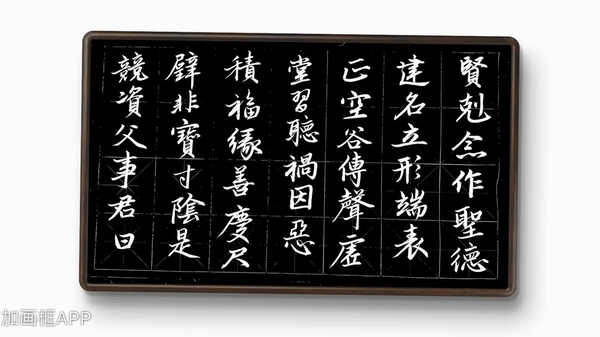 賢剋念作聖德
建名立形端表
正空谷傳聲虛
堂習聽禍因惡
積福緣善慶尺
璧非寶寸陰是
競資父事君曰
加画框APP